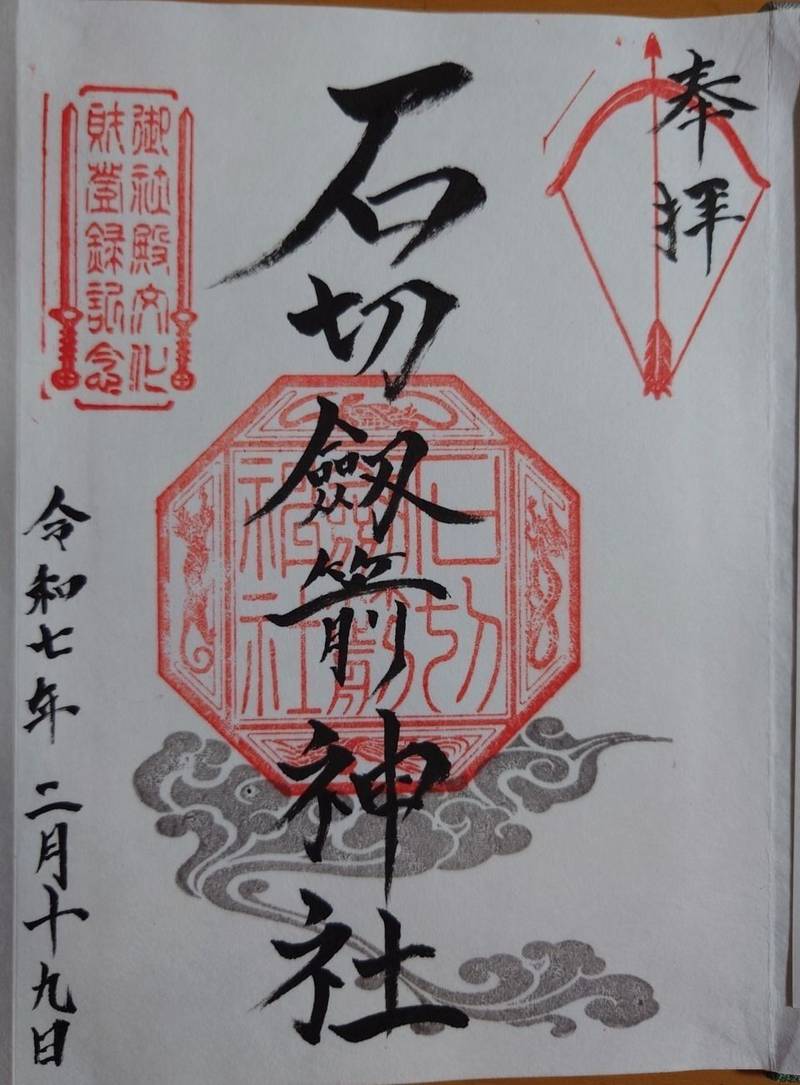 奉拝
石切劔箭神社
石切劔箭神社
御社殿文化
財登録記念
令和七年 二月十九日